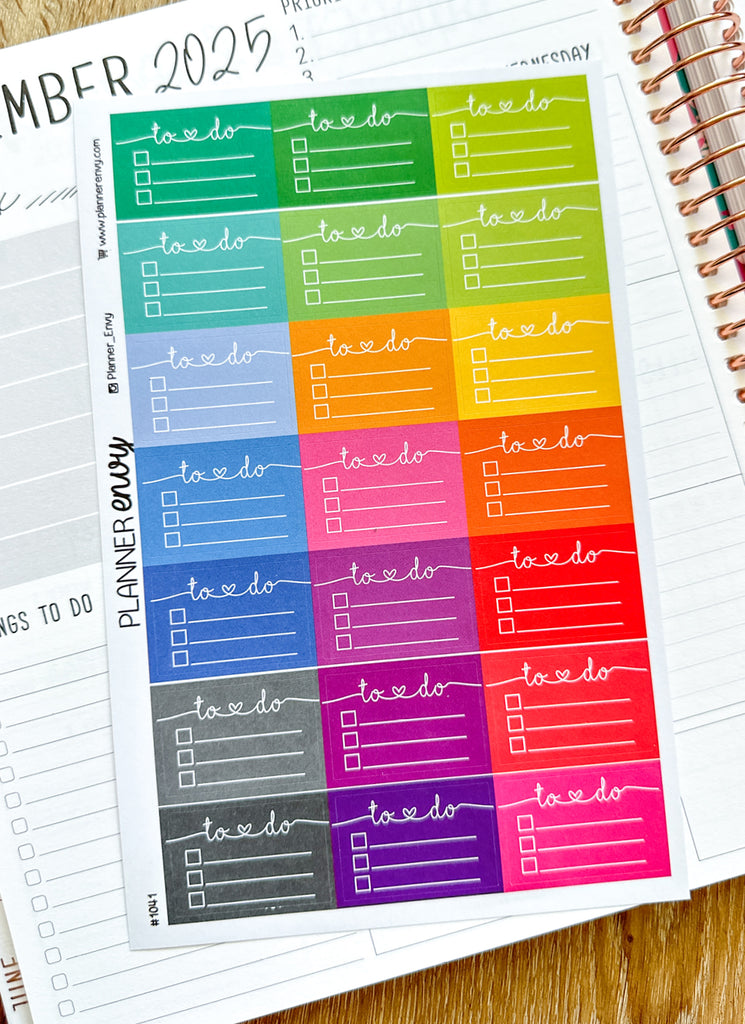 EMBER 2025
PRIORI
1.
2.
3
WEDNESDAY
NGS TO DO
JUNE
www.plannerenvy.com
Planner_Envy
PLANNER envy
#1041
to do
to do
to do
to do
to do
to do
to do
to do
to do
to do
to do
to do
to do
to do
to do
to do
to do
to do
to do
to do
to do